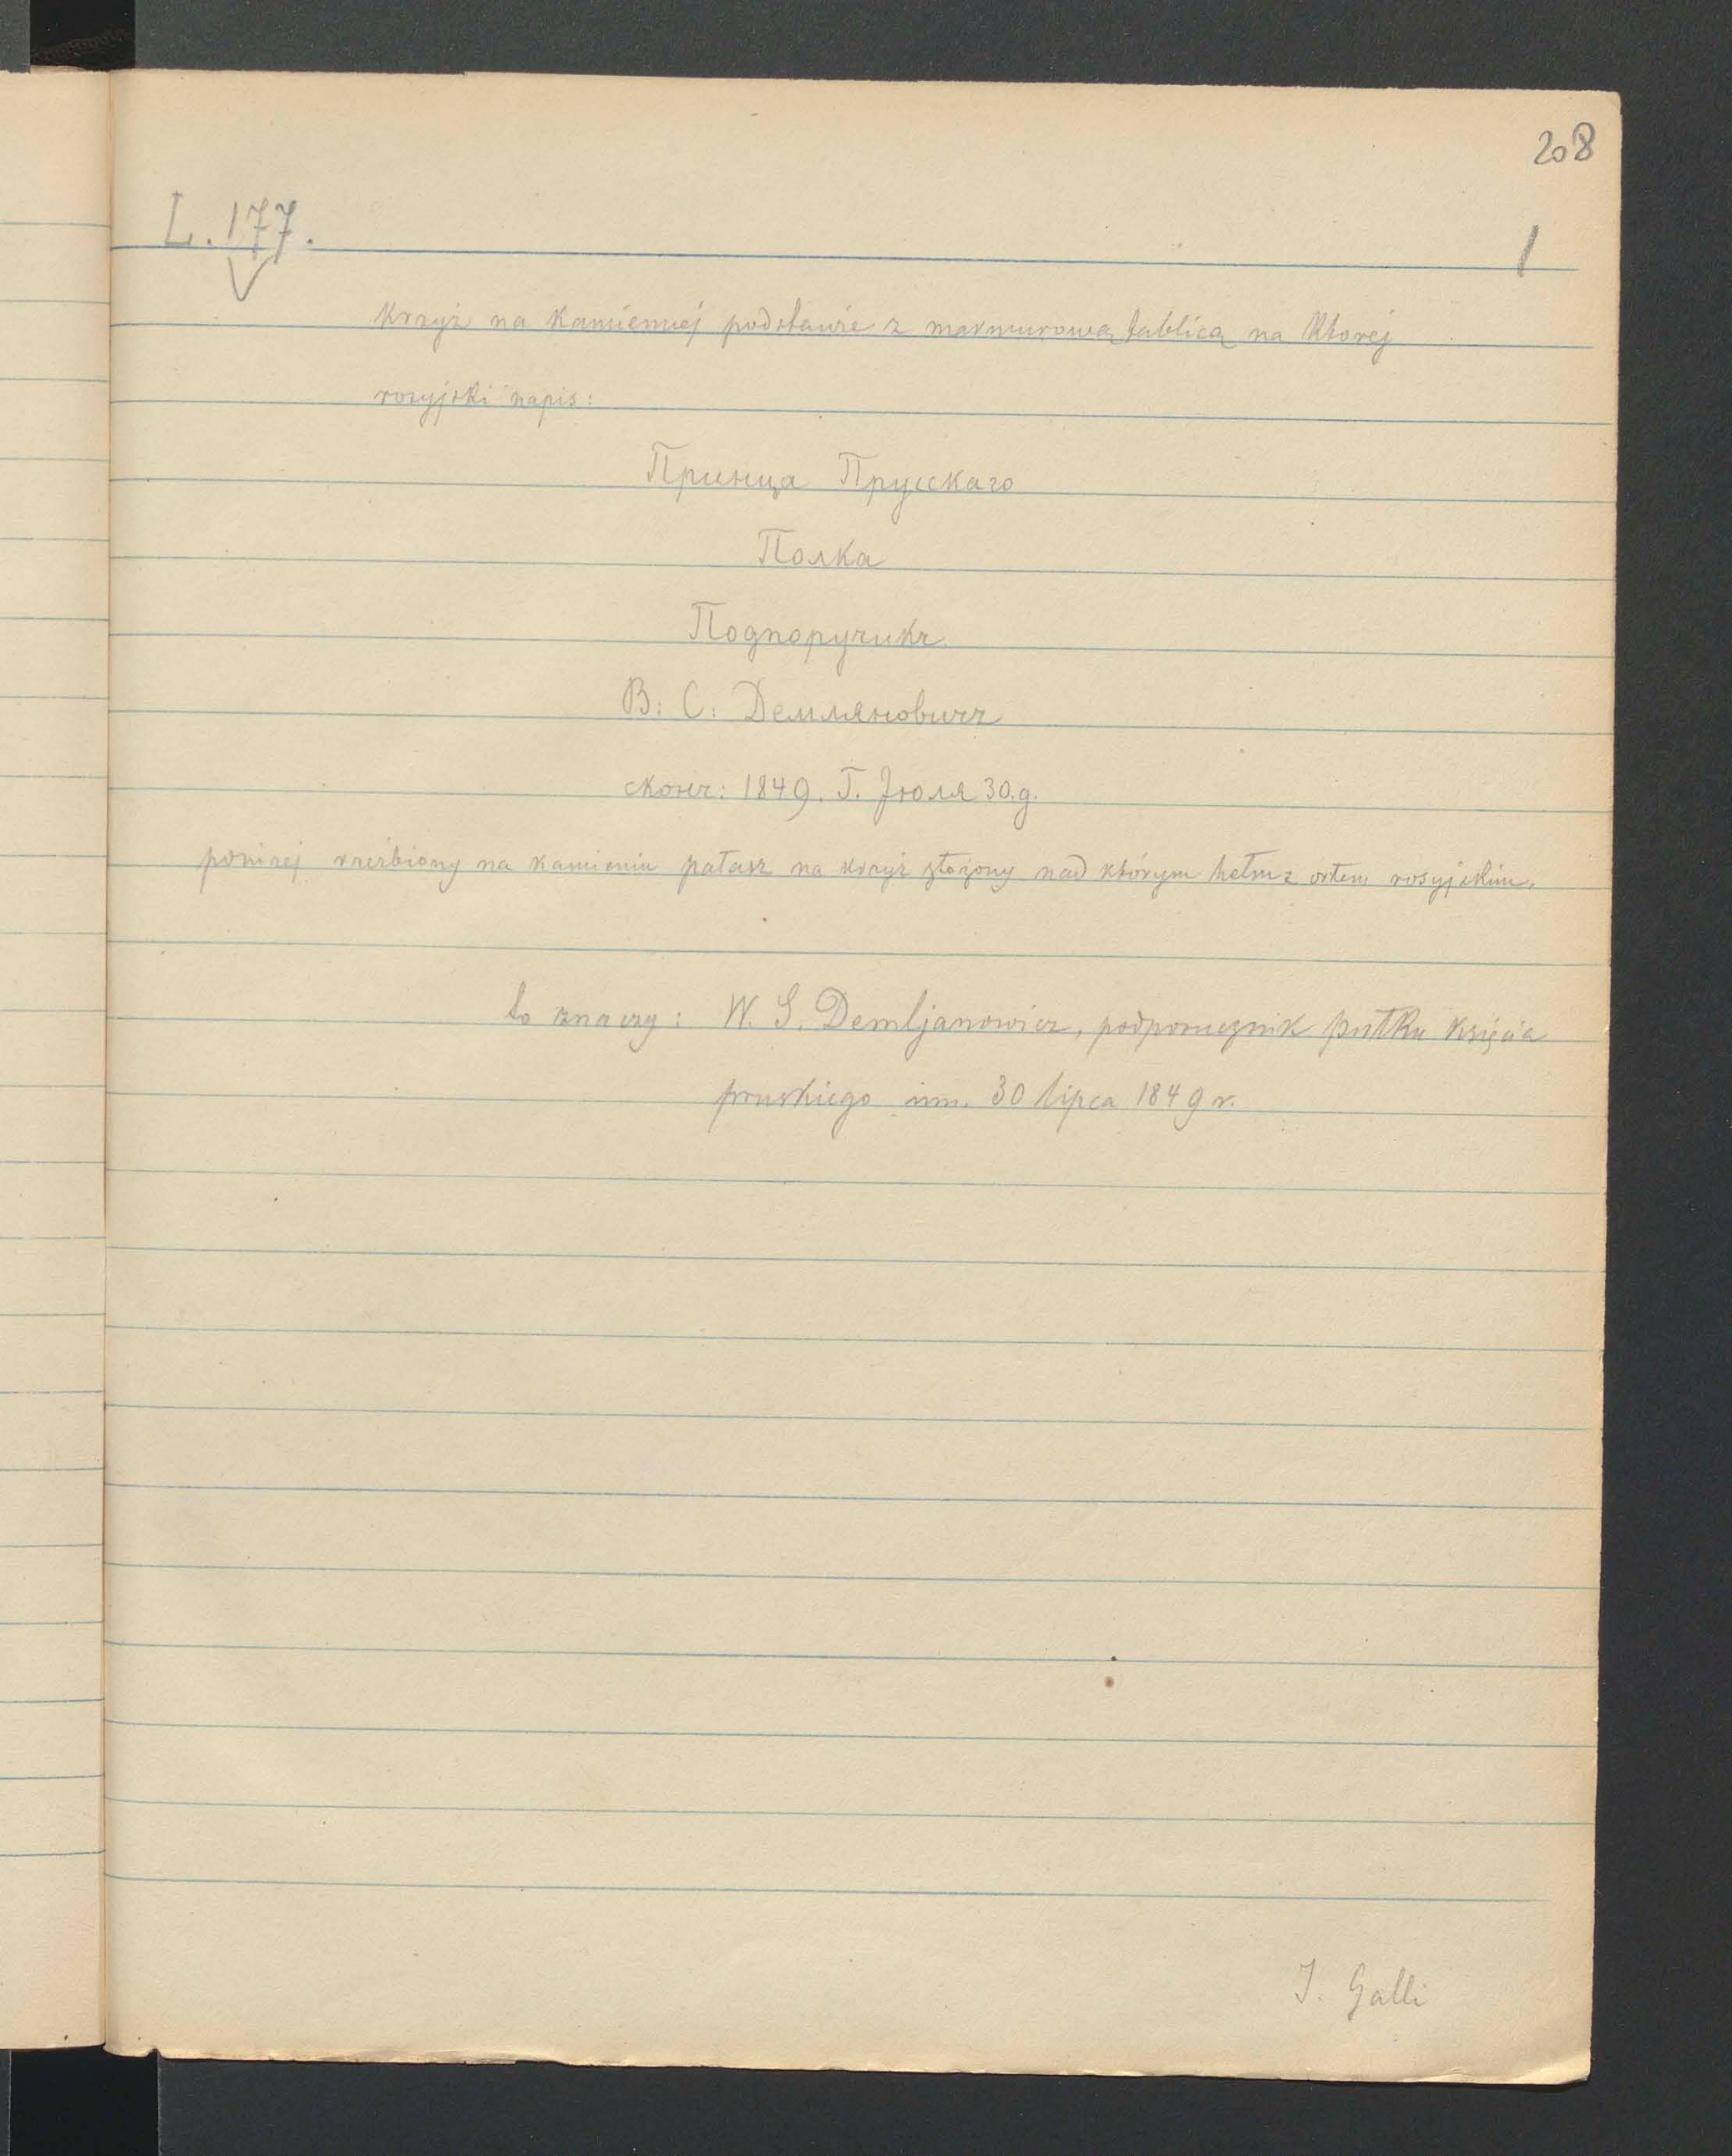 208
L. 177.
1
Krzyż na kamiennej podstawie z marmurową tablicą na ktorej
rosyjski napis:
Принца Прусскаго
Полка
Подпоручикъ
В: С: Демляновичъ
сконч: 1849. Г. Јюля 30.д.
poniżej rzeźbiony na kamieniu pałasz na krzyż złożony nad którym hełm z orłem rosyjskim.
to znaczy: W. S. Demljanowicz, podporucznik pułku księcia
pruskiego um. 30 lipca 1849 r.
J. Galli